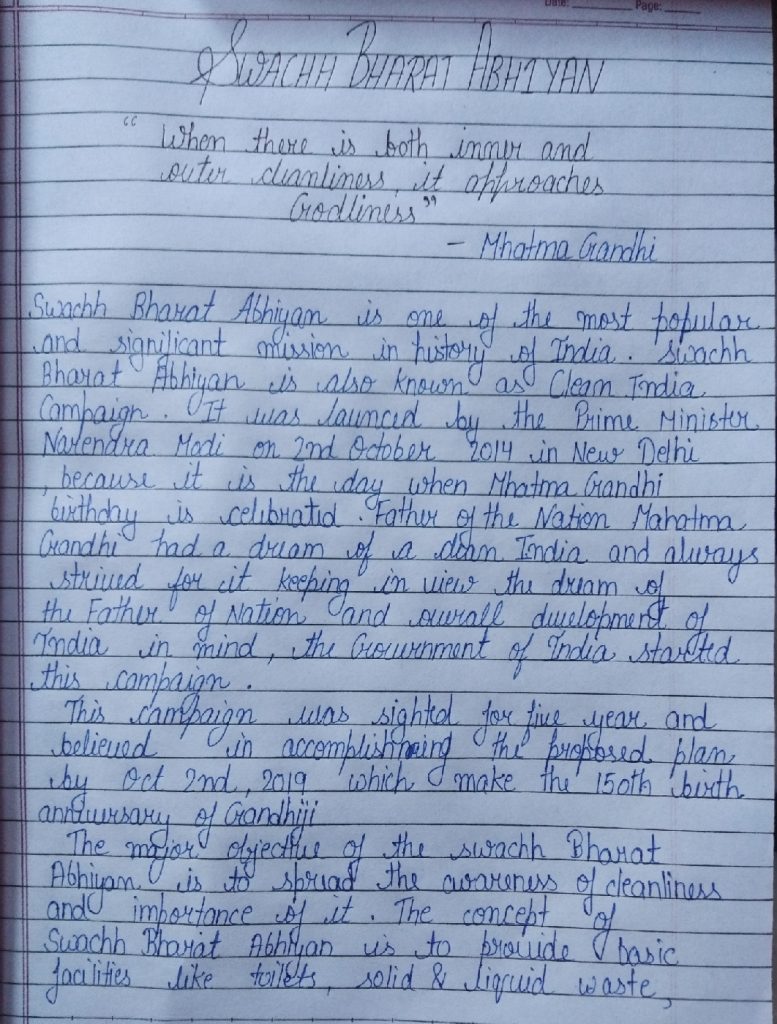 Date: Page:
SWACHH BHARAT ABHIYAN
"When there is both inner and
outer cleanliness, it approaches
Godliness"
- Mhatma Gandhi
Swachh Bharat Abhiyan is one of the most popular
and significant mission in history of India. Swachh
Bharat Abhiyan is also known as Clean India
Campaign. It was launced by the Prime Minister
Narendra Modi on 2nd October 2014 in New Delhi
, because it is the day when Mhatma Gandhi
birthday is celebrated. Father of the Nation Mahatma
Gandhi had a dream of a clean India and always
strived for it keeping in view the dream of
the Father of Nation and overall development of
India in mind, the Government of India started
this campaign.
This campaign was sighted for five year and
believed in accomplishing the proposed plan
by Oct 2nd, 2019 which make the 150th birth
anniversary of Gandhiji
The major objective of the swachh Bharat
Abhiyan is to spread the awareness of cleanliness
and importance of it. The concept of
Swachh Bharat Abhiyan is to provide basic
facilities like toilets, solid & liquid waste,